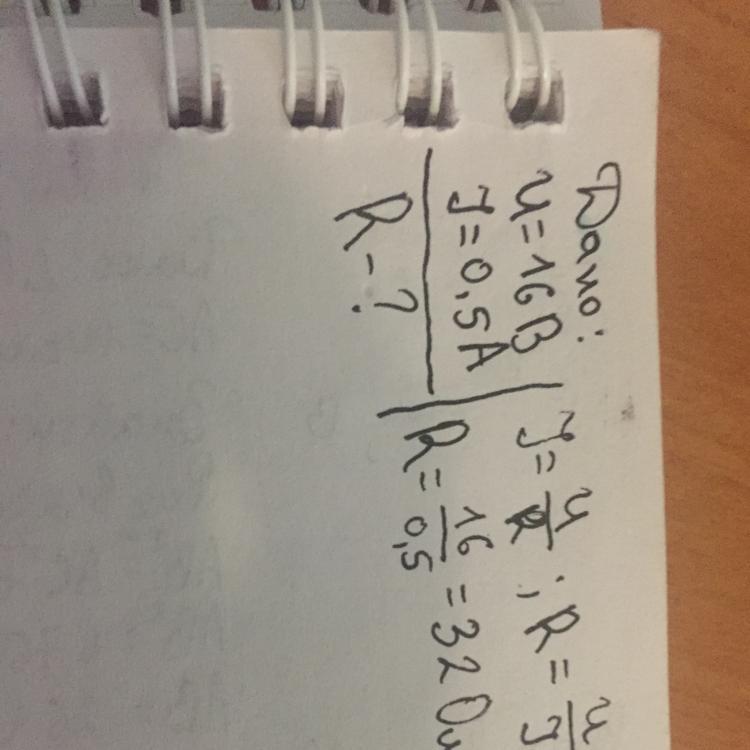 Дано:
U=16В
I=0,5А
R-?
I=U/R; R=U/I
R=16/0,5=32 Ом